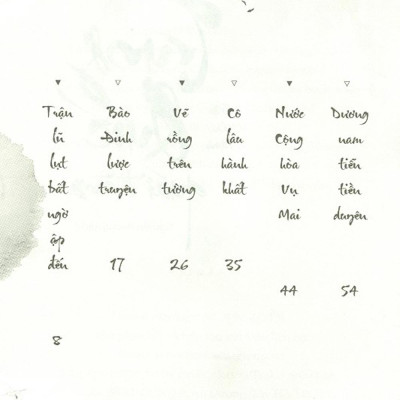 Trận lũ lụt bất ngờ ập đến 8
Bào Đinh lược truyện 17
Vẽ rồng trên tường 26
Cô lâu hành khất 35
Nước Cộng hòa Vụ Mai 44
Dương nam tiến tiền duyên 54